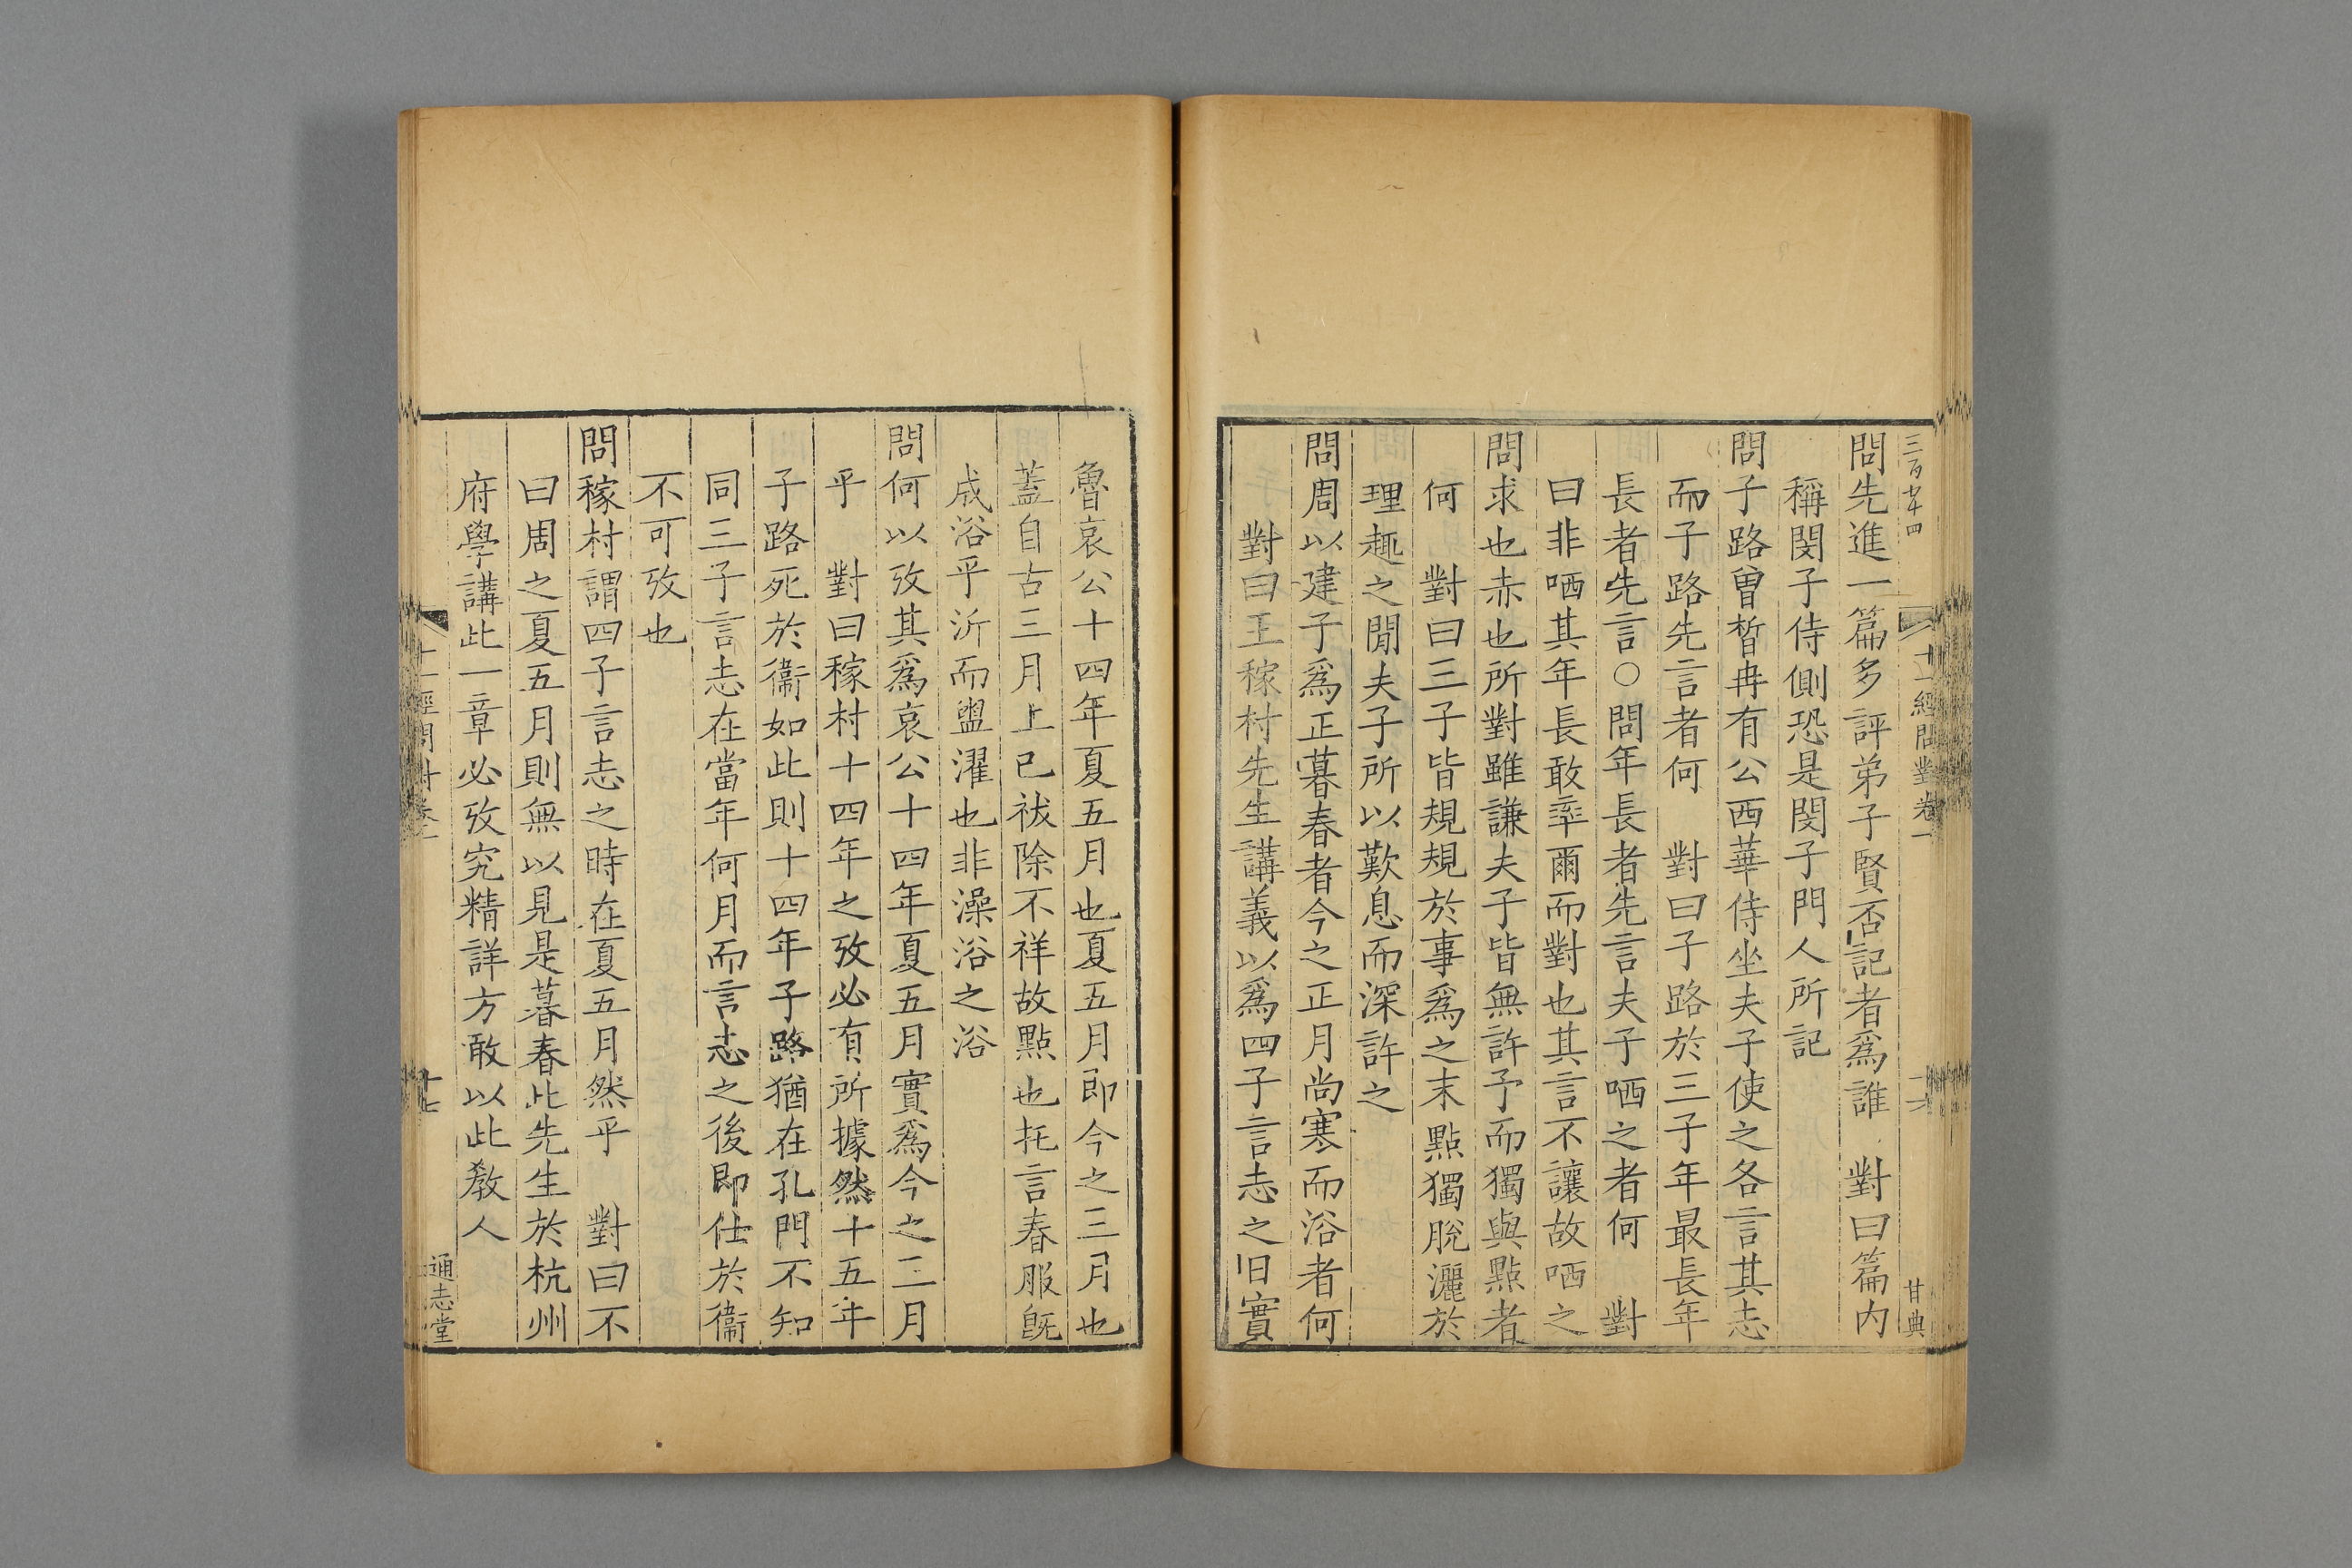 三百廿四
十一經問對卷一
甘典
問先進一篇多評弟子賢否記者爲誰 對曰篇内
稱閔子侍側恐是閔子門人所記
問子路曾晳冉有公西華侍坐夫子使之各言其志
而子路先言者何 對曰子路於三子年最長年
長者先言○問年長者先言夫子哂之者何 對
曰非哂其年長敢率爾而對也其言不讓故哂之
問求也赤也所對雖謙夫子皆無許予而獨與點者
何 對曰三子皆規規於事爲之末點獨脫灑於
理趣之閒夫子所以歎息而深許之
問周以建子爲正暮春者今之正月尚寒而浴者何
對曰王稼村先生講義以爲四子言志之旧實
魯哀公十四年夏五月也夏五月即今之三月也
蓋自古三月上巳祓除不祥故點也托言春服旣
成浴乎沂而盥濯也非澡浴之浴
問何以攷其爲哀公十四年夏五月實爲今之二月
乎 對曰稼村十四年之攷必有所據然十五年
子路死於衞如此則十四年子路猶在孔門不知
同三子言志在當年何月而言志之後即仕於衞
不可攷也
問稼村謂四子言志之時在夏五月然乎 對曰不
曰周之夏五月則無以見是暮春此先生於杭州
府學講此一章必攷究精詳方敢以此敎人
十一經問對卷一
十七
通志堂